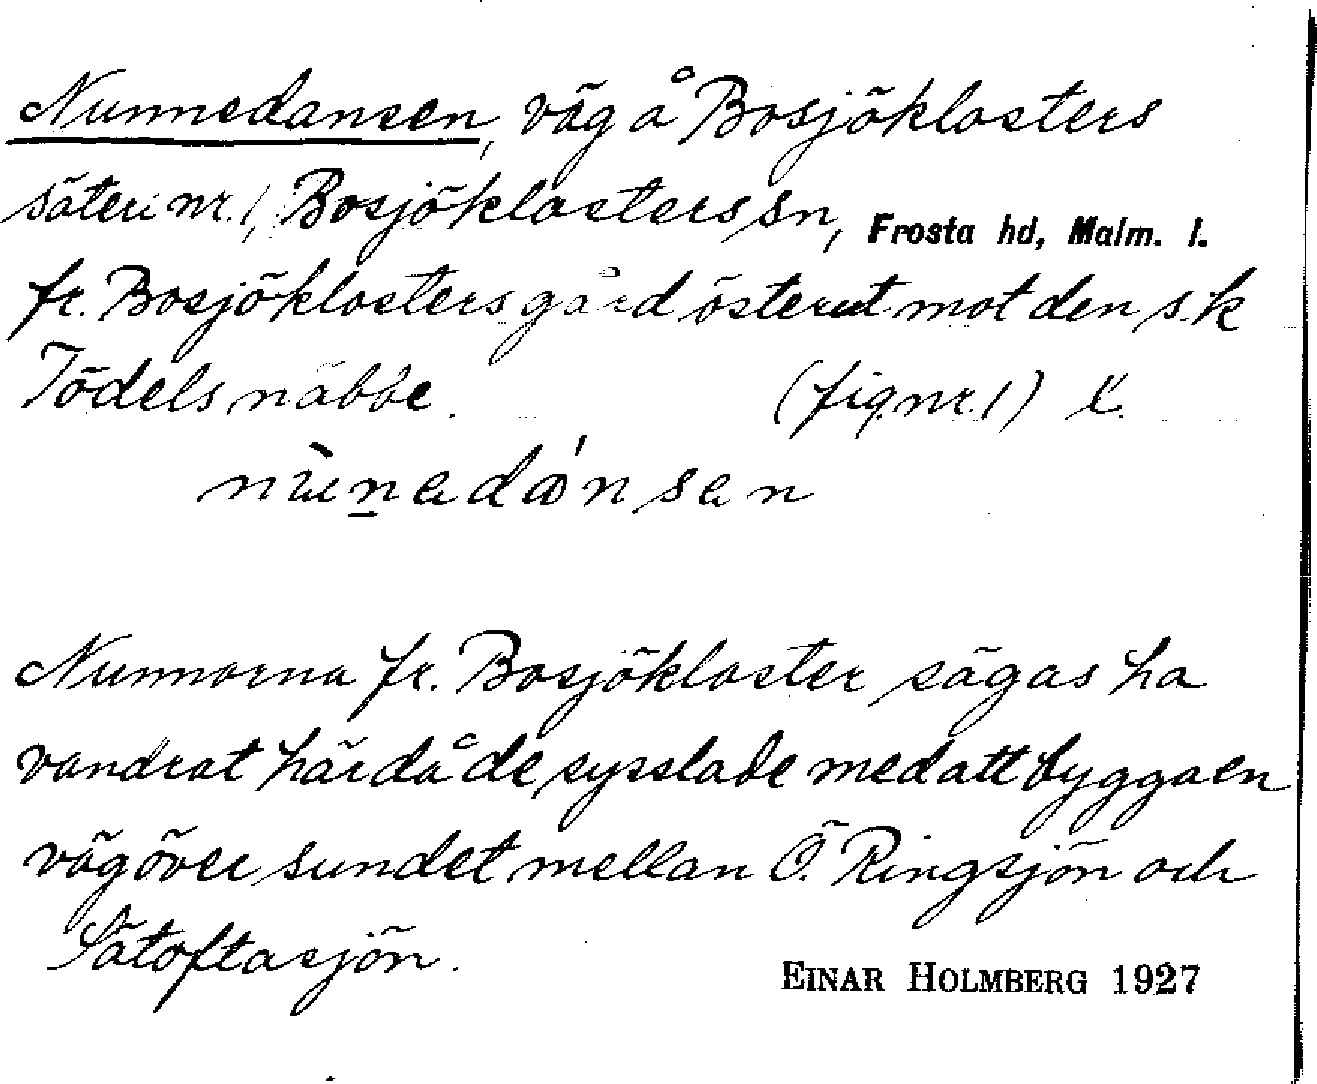 Nunnedansen, väg å Bosjöklosters
säteri nr. 1, Bosjöklosters sn, Frosta hd, Malm. l.
fr. Bosjöklosters gård österut mot den s.k
Tödels näbbe. (fig nr. 1)
nùnedánsen
Nunnorna fr. Bosjökloster sägas ha
vandrat här då de sysslade med att bygga en
väg över sundet mellan Ö. Ringsjön och
Sätoftasjön.
EINAR HOLMBERG 1927